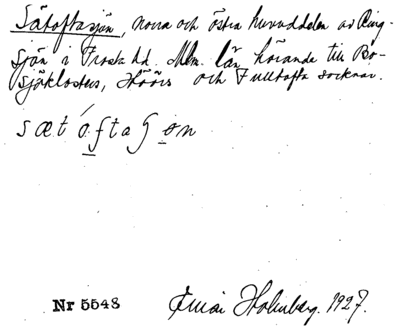 Sätoftasjön, norra och östra huvuddelen av Ring-
sjön i Frosta hd. Mlm. län hörande till Bo-
sjöklosters, Höörs och Fulltofta socknar.
sætóftaʃøn
Nr 5548 Holmberg. 1927.